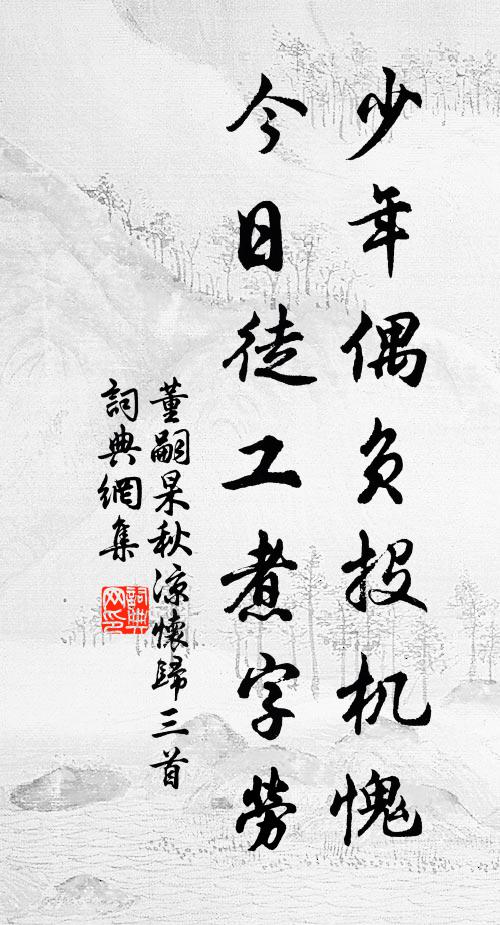 少年偶负投机愧
今日徒工煮字勞
董嗣杲秋凉懷歸三首
詞典網集
詞典網印